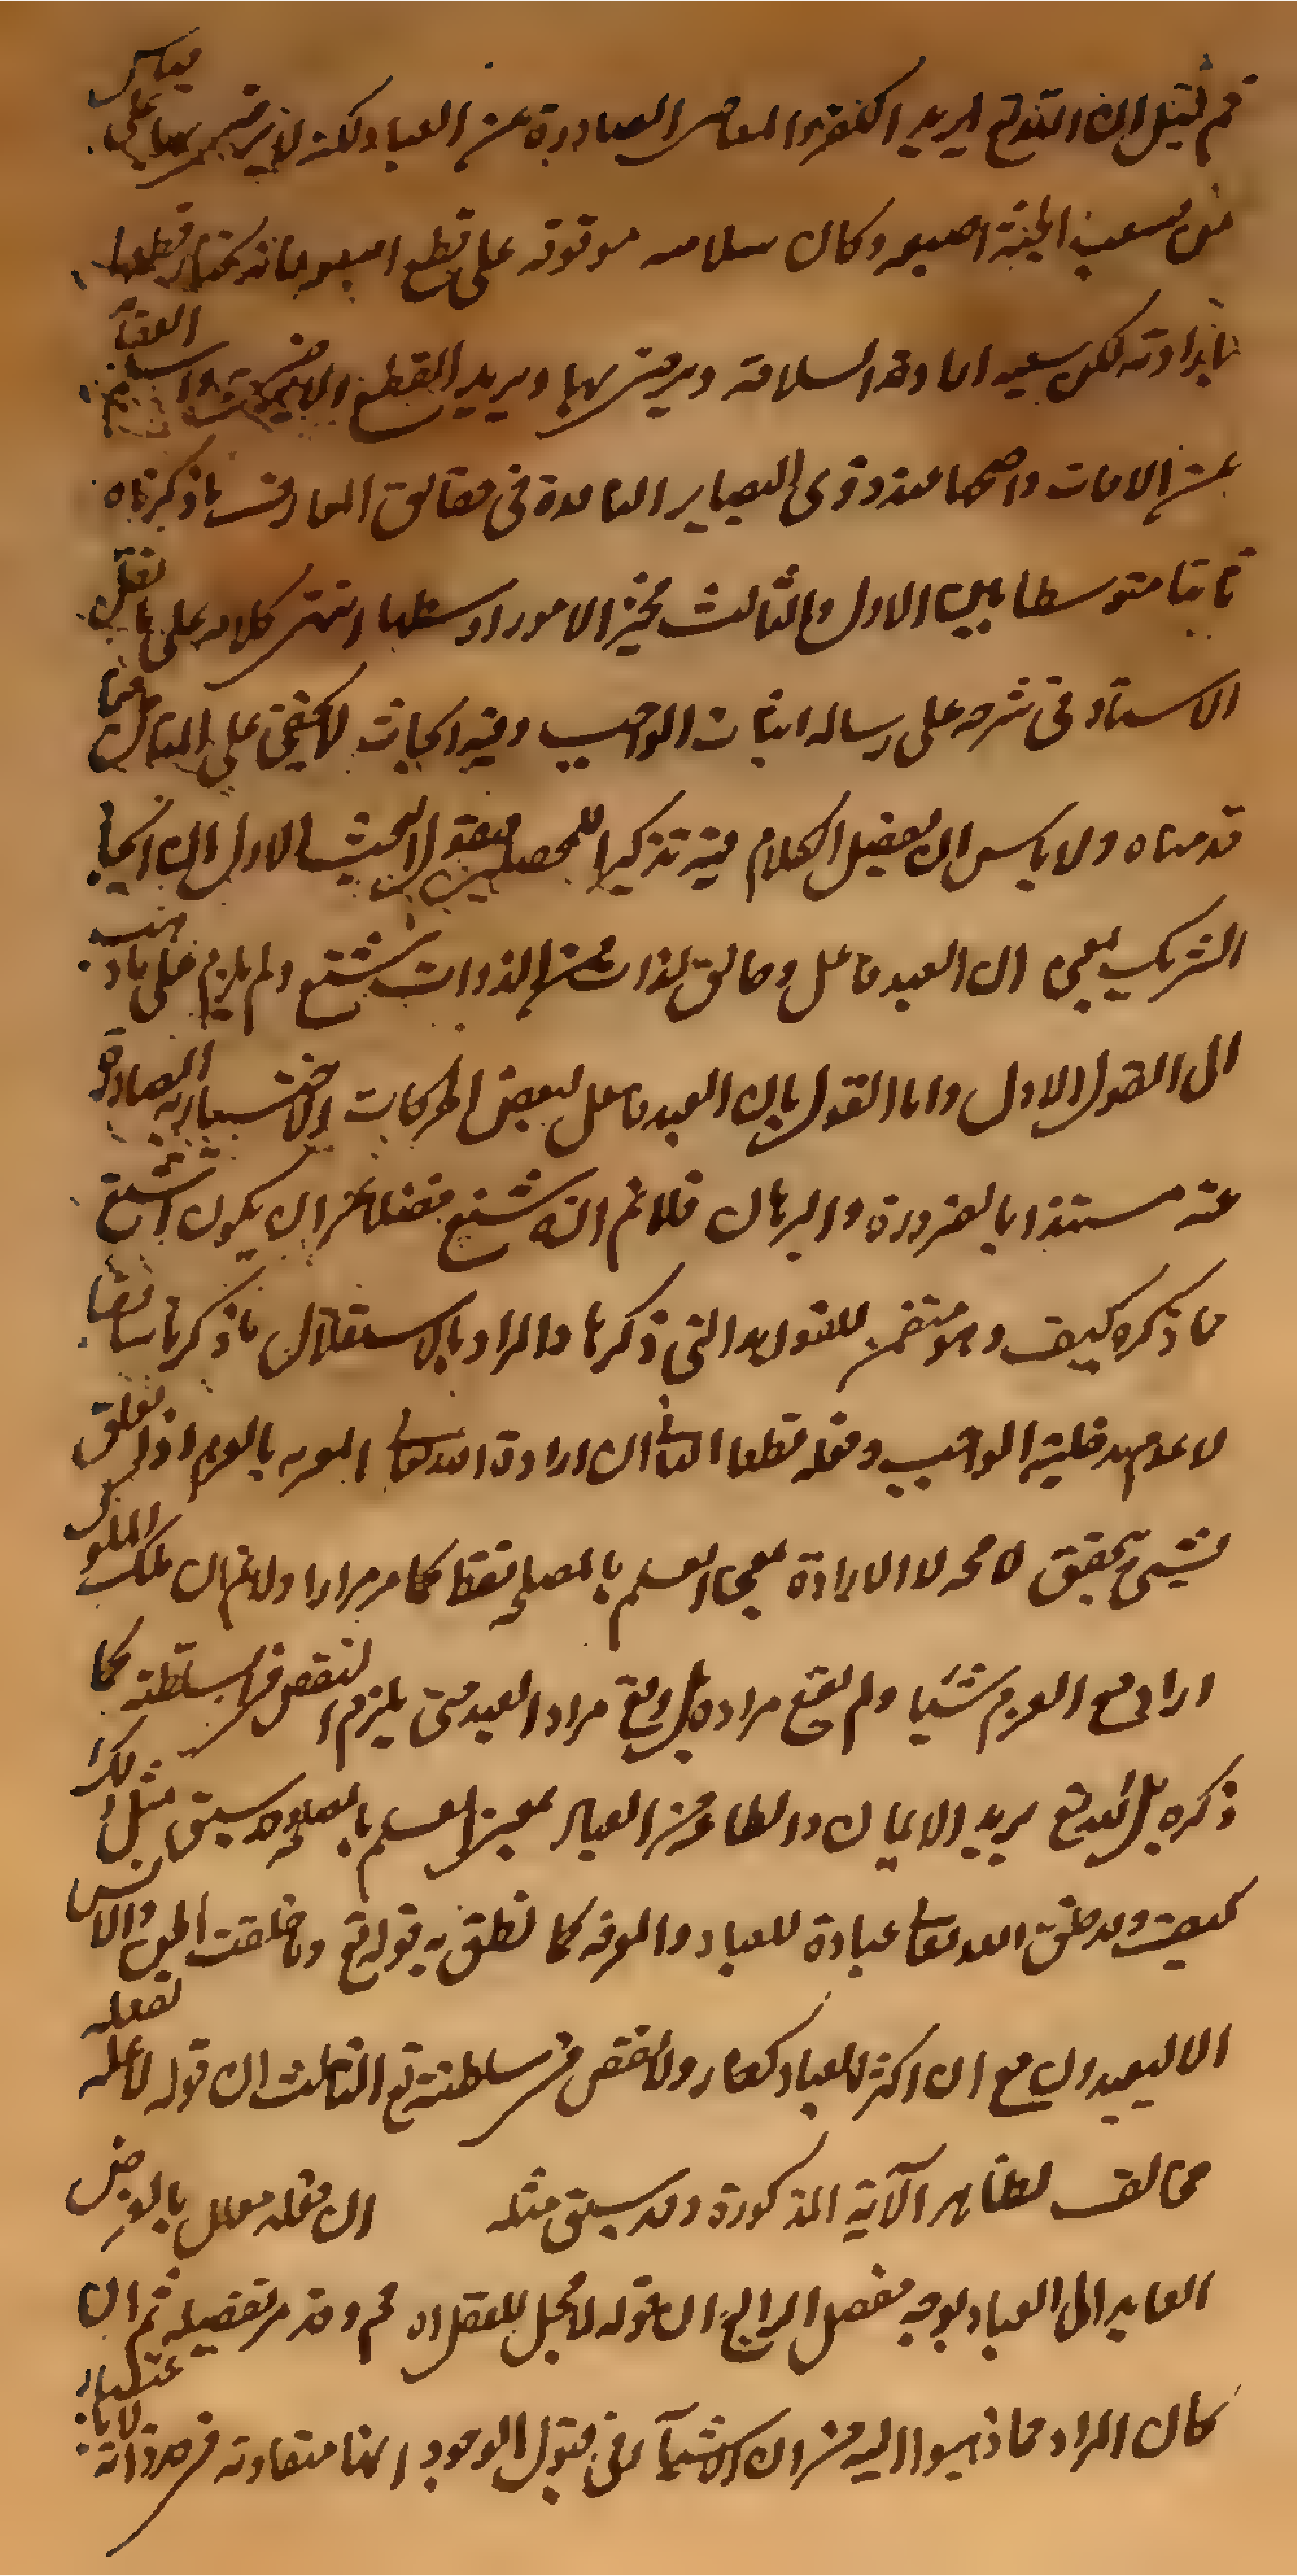 ثم قيل ان الله تع يريد الكفر والمعاصى الصادرة عن العباد ولكن لا يرضى بها على قياس
من لسعت الحية اصبعه وكان سلامته موقوفة على قطع اصبعه فانه يختار قطعها
بارادته لكن بتبعية ارادة السلامة ويرضى بها ويريد القطع ولا يرضى
عن الافات واصحها عند ذوى البصاير النافذة فى حقايق المعارف ما ذكرناه
ثابتا متوسطا بين الاول والثالث فخير الامور اوسطها انتهى كلامه على ما نقله
الاستاد فى شرحه على رساله اثبات الواجب وفيه ابحاث لا يخفى على المتامل فيما
قدمناه ولا باس ان نفصل الكلام فيه تذكيرا للمحصلين فنقول البحث الاول ان اثبات
الشريك بمعنى ان العبد فاعل وخالق لذات من الذوات شنيع ولم يلزم على ما ذهب
الى القول الاول واما القول بان العبد فاعل لبعض الحركات الاختيارية الصادرة
عنه مستندا بالضرورة والبرهان فلا نم انه شنيع فضلا عن ان يكون اشنع
مما ذكره كيف وهو متضمن للفوايد التى ذكرها والمراد بالاستقلال ما ذكرنا سابقا
لا عدم مدخلية الواجب وفعله قطعا الثانى ان ارادة الله تعالى المعرية بالعزم اذا تعلق
بشىء تحقق لا محه لا الارادة بمعنى العلم بالمصلحة فقط كما مر مرارا ولا نم ان ملك الملوك
اراد مع العزم شيئا ولم يقع مراده بل وقع مراد العبد حتى يلزم النقص فى سلطنته كما
ذكره بل الله تع يريد الايمان والطاعة من العباد بمعنى العلم بالمصلحة وقد سبق مثل ذلك
كيف وقد خلق الله تعالى عباده للعبادة والمعرفة كما نطق به قوله تع وما خلقت الجن والانس
الا ليعبدون مع ان اكثر العباد كفار ولا نقص فى سلطنته تع الثالث ان قوله لا علة لفعله
مخالف لظاهر الآية المذكورة وقد سبق مثله ان فعله معلل بالغرض
العايد الى العباد بوجه مفصل الرابع ان قوله لا مجال للعقل اه نم وقد مر تفصيله ثم ان
كان المراد مما ذهبوا اليه من ان الاشياء فى قبول الوجود انها متفاوتة فى حد ذاته لا باعتبار